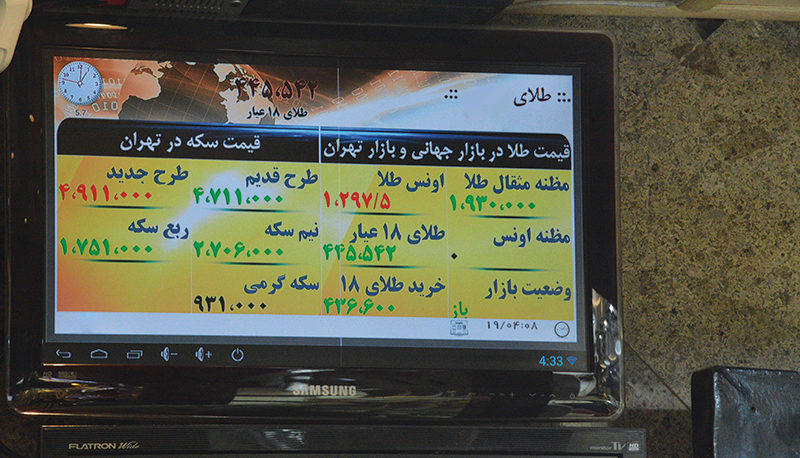 .:: طلای ::.
۴۴۵،۵۴۲
طلای ۱۸عیار
قیمت طلا در بازار جهانی و بازار تهران
قیمت سکه در تهران
مظنه مثقال طلا
۱،۹۳۰،۰۰۰
اونس طلا
۱،۲۹۷/۵
طرح قدیم
۴،۷۱۱،۰۰۰
طرح جدید
۴،۹۱۱،۰۰۰
مظنه اونس
۰
طلای ۱۸ عیار
۴۴۵،۵۴۲
نیم سکه
۲،۷۰۶،۰۰۰
ربع سکه
۱،۷۵۱،۰۰۰
وضعیت بازار
باز
خرید طلای ۱۸
۴۳۶،۶۰۰
سکه گرمی
۹۳۱،۰۰۰
۱۹/۰۴:۰۸
4:33
SAMSUNG
FLATRON Wide
monitor TV HD